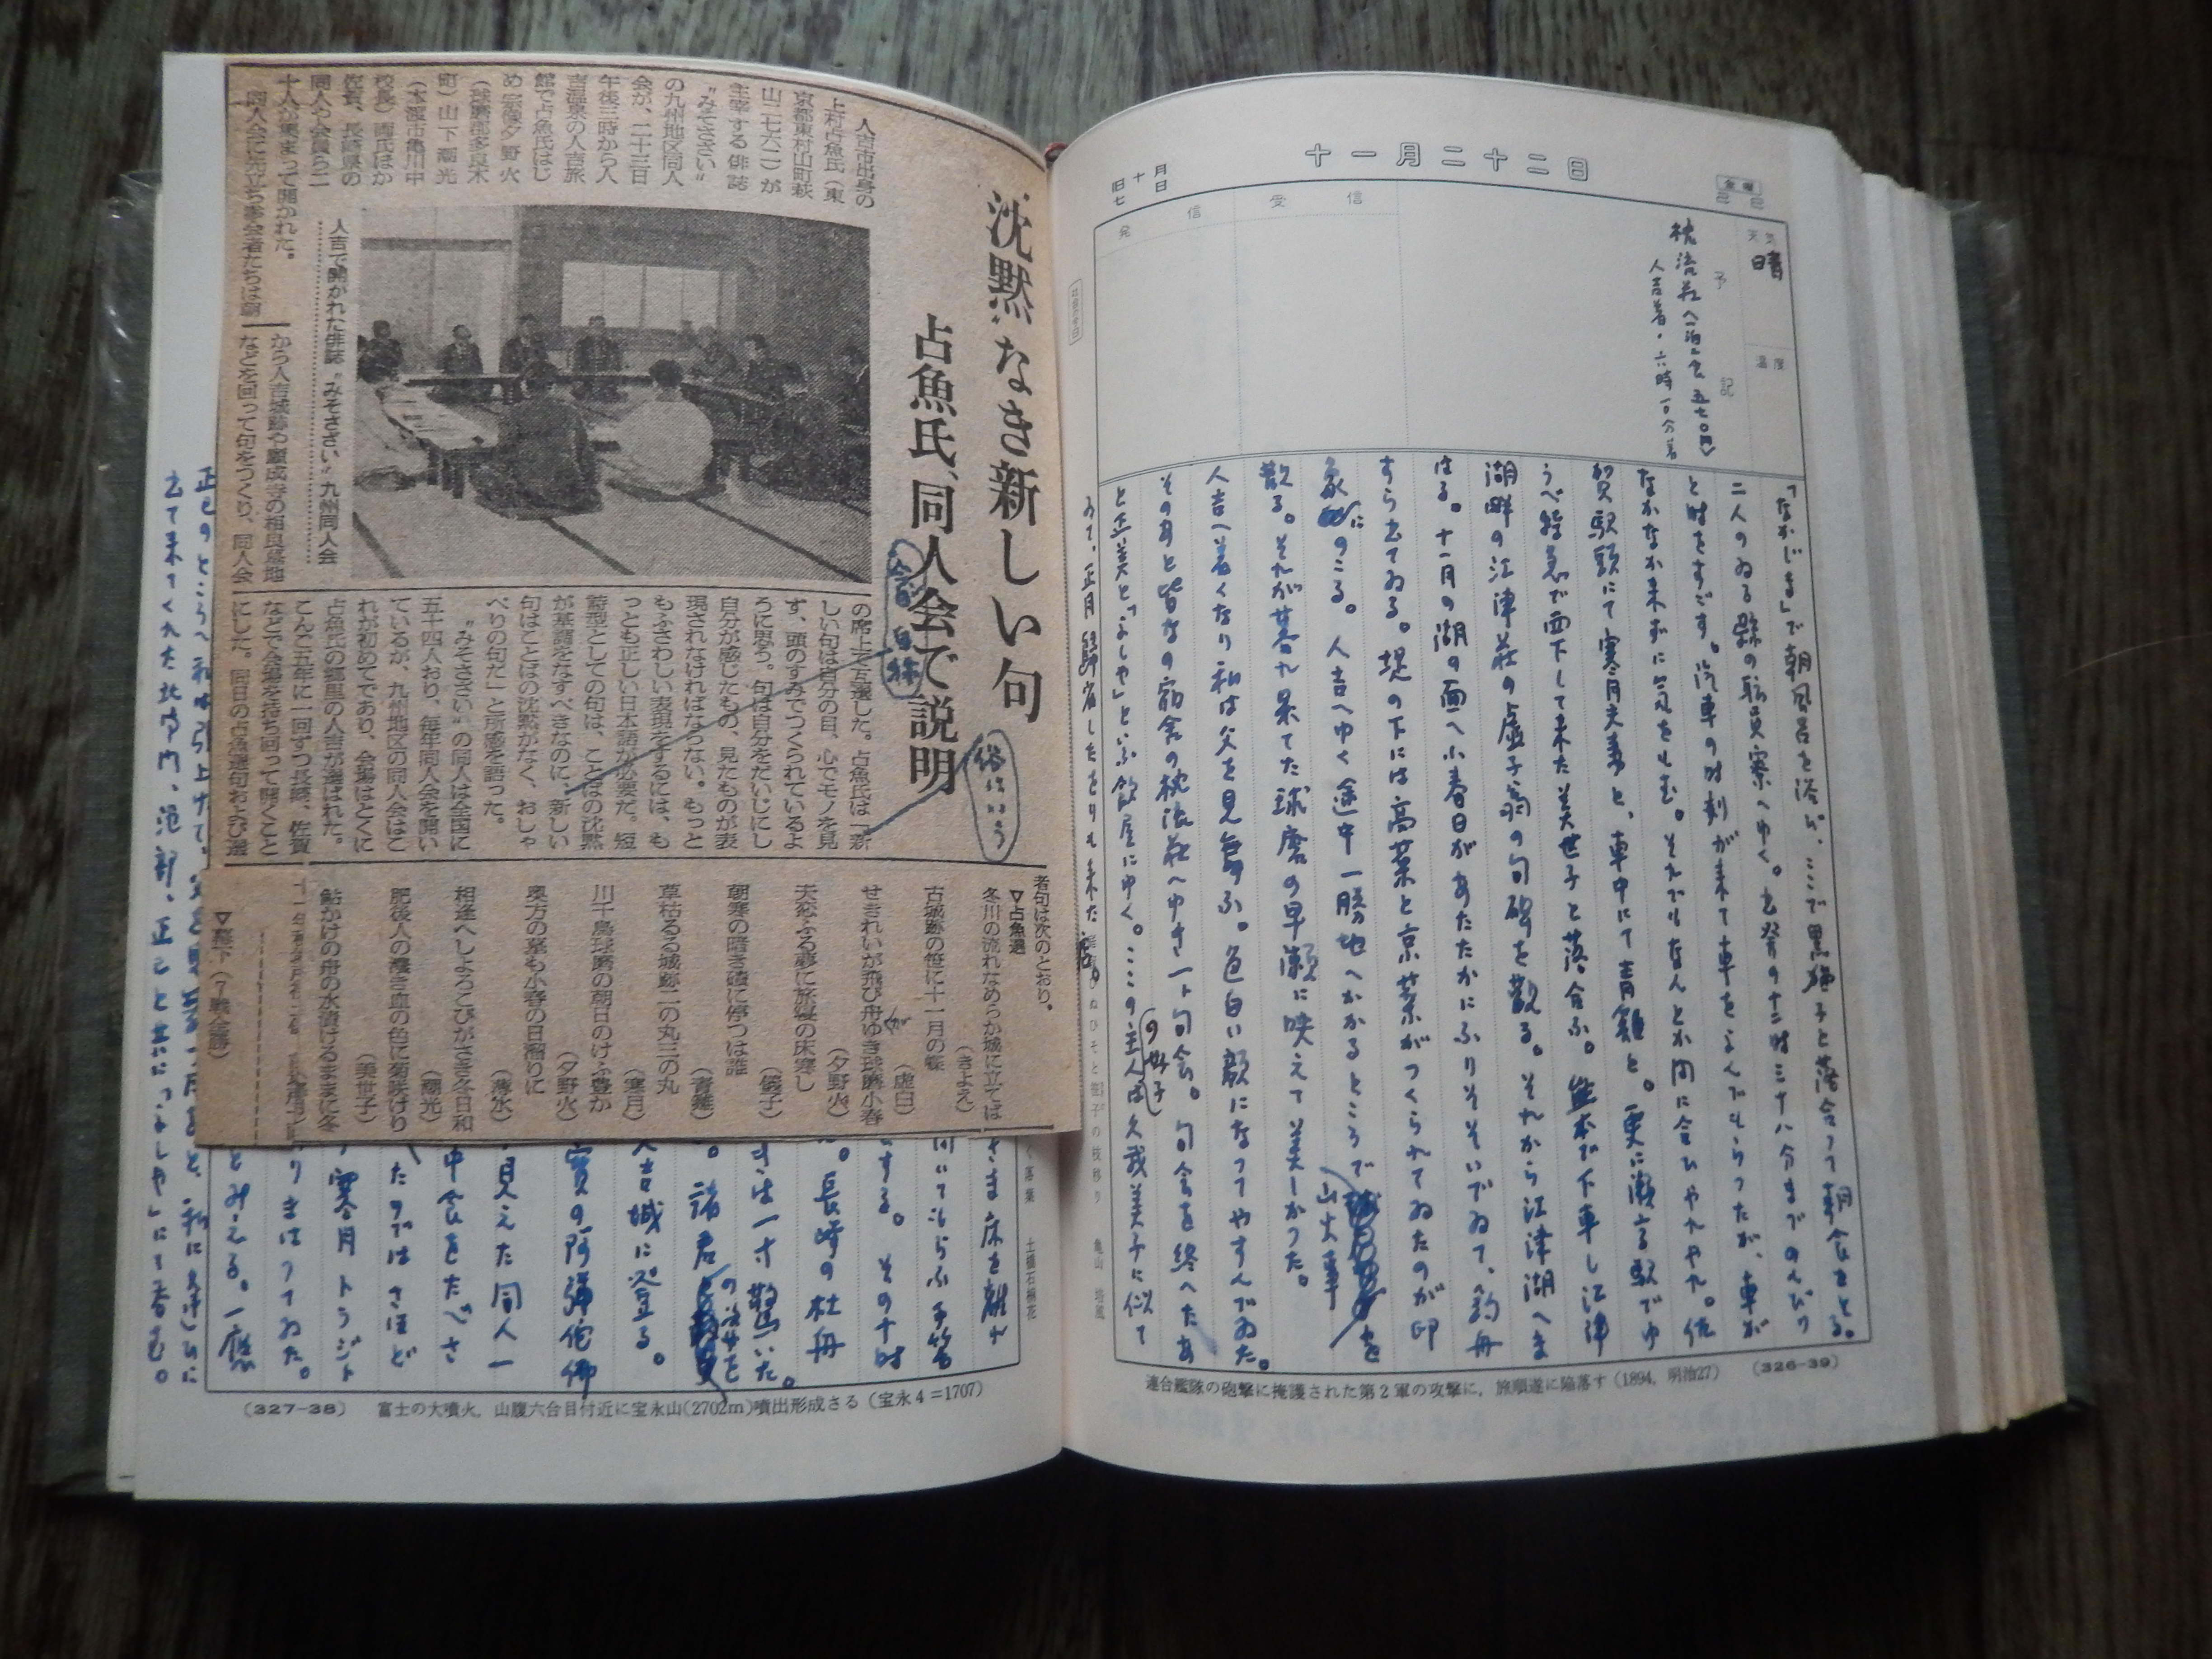 十一月二十二日
金曜
旧十月
七日
天気
晴
温度
予記
受信
発信
枕流荘へ一泊二食
人吉着・六時一〇分着
「なかじま」で朝風呂を浴び、ここで
と落合つて朝食をとる。
二人のゐる縣の職員寮へゆく。
と時をすごす。汽車の時刻が来て車をよんでもらつたが、車が
なかなか来ずに気をもむ。それでもなんとか間に合ひやれやれ。佐
賀駅頭にて寒月夫妻と、車中にて青難と。更に
うべ特急で西下して来た美世子と落合ふ。熊本で下車し江津
湖畔の江津荘の虚子翁の句碑を観る。それから江津湖へま
はる。十一月の湖の面へ小春日があたたかにふりそそいでゐて、釣舟
すら出てゐる。堤の下には高菜と京菜がつくられてゐたのが印
象にのこる。人吉へゆく途中一勝地へかかるところで山火事を
観る。それが暮れ果てた球磨の早瀬に映えて美しかつた。
人吉へ着くなり私は父を見舞ふ。色白い顔になつてやすんでゐた。
そのあと皆なの宿舎の枕流荘へゆき一ト句会。句会を終へたあ
と正美と「よしや」といふ飲屋にゆく。ここの主人
久我美子に似て
ゐて、正月歸省したをりも来た
連合艦隊の砲撃に掩護された第2軍の攻撃に，旅順遂に陥落す（1894，明治27） （326-39）
沈黙なき新しい句
占魚氏、同人会で説明
人吉市出身の
上村占魚氏（東
京都東村山町萩
山二七六二）が
主宰する俳誌
“みそさざい”
の九州地区同人
会が、二十三日
午後三時から人
吉温泉の人吉旅
館で占魚氏はじ
め宗像夕野火
（球磨郡多良木
町）山下潮光
（本渡市亀川中
校長）両氏ほか
佐賀、長崎県の
同人や会員ら二
十人が集まって開かれた。
同人会に先立ち参会者たちは朝
から人吉城跡や願成寺の相良墓地
などを回って句をつくり、同人会
人吉で開かれた俳誌“みそさざい”九州同人会
の席上で互選した。占魚氏は「新
しい句は自分の目、心でモノを見
す、頭のすみでつくられているよ
うに思う。句は自分をだいじにし
自分が感じたもの、見たものが表
現されなければならない。もっと
もふさわしい表現をするには、も
っとも正しい日本語が必要だ。短
詩型としての句は、ことばの沈黙
が基調をなすべきなのに、新しい
句はことばの沈黙がなく、おしゃ
べりの句だ」と所感を語った。
“みそさざい”の同人は全国に
五十四人おり、毎年同人会を開い
ているが、九州地区の同人会はこ
れが初めてであり、会場はとくに
占魚氏の郷里の人吉が選ばれた。
こんご五年に一回ずつ長崎、佐賀
などで会場を持ち回って開くこと
にした。同日の占魚選句および選
者句は次のとおり。
▽占魚選
冬川の流れなめらか城に立てば
（きよえ）
古城跡の笹に十一月の蝶
（虚白）
せきれいが飛び舟ゆき球磨小春
（夕野火）
夫恋ふる夢に旅寝の床寒し
（儀子）
朝寒の暗き磧に停つは誰
（青難）
草枯るる城跡二の丸三の丸
（寒月）
川千鳥球磨の朝日のけふ豊か
（夕野火）
奥方の墓も小春の日溜りに
（薄水）
相逢へしよろこびがさき冬日和
（潮光）
肥後人の濃き血の色に菊咲けり
（美世子）
鮎かけの舟の水漬けるままに冬
▽幕下（7戦全勝）
俗にいう
土橋石楠花
亀山
さま床を離れ
てもらふ手筈
する。その十時
長崎の杜舟
すは一寸驚いた。
諸君の句
人吉城に登る。
寶の阿彌陀佛
見えた同人一
中食をたべさ
たのではさほど
寒月トラジト
りきはつてゐた。
とみえる。一應
正己のところへ私は引上げた。
去て来てくれた
正己と共に「よしや」にて呑む。
（327-38） 富士の大噴火，山腹六合目付近に宝永山（2702m）噴出形成さる（宝永4＝1707）